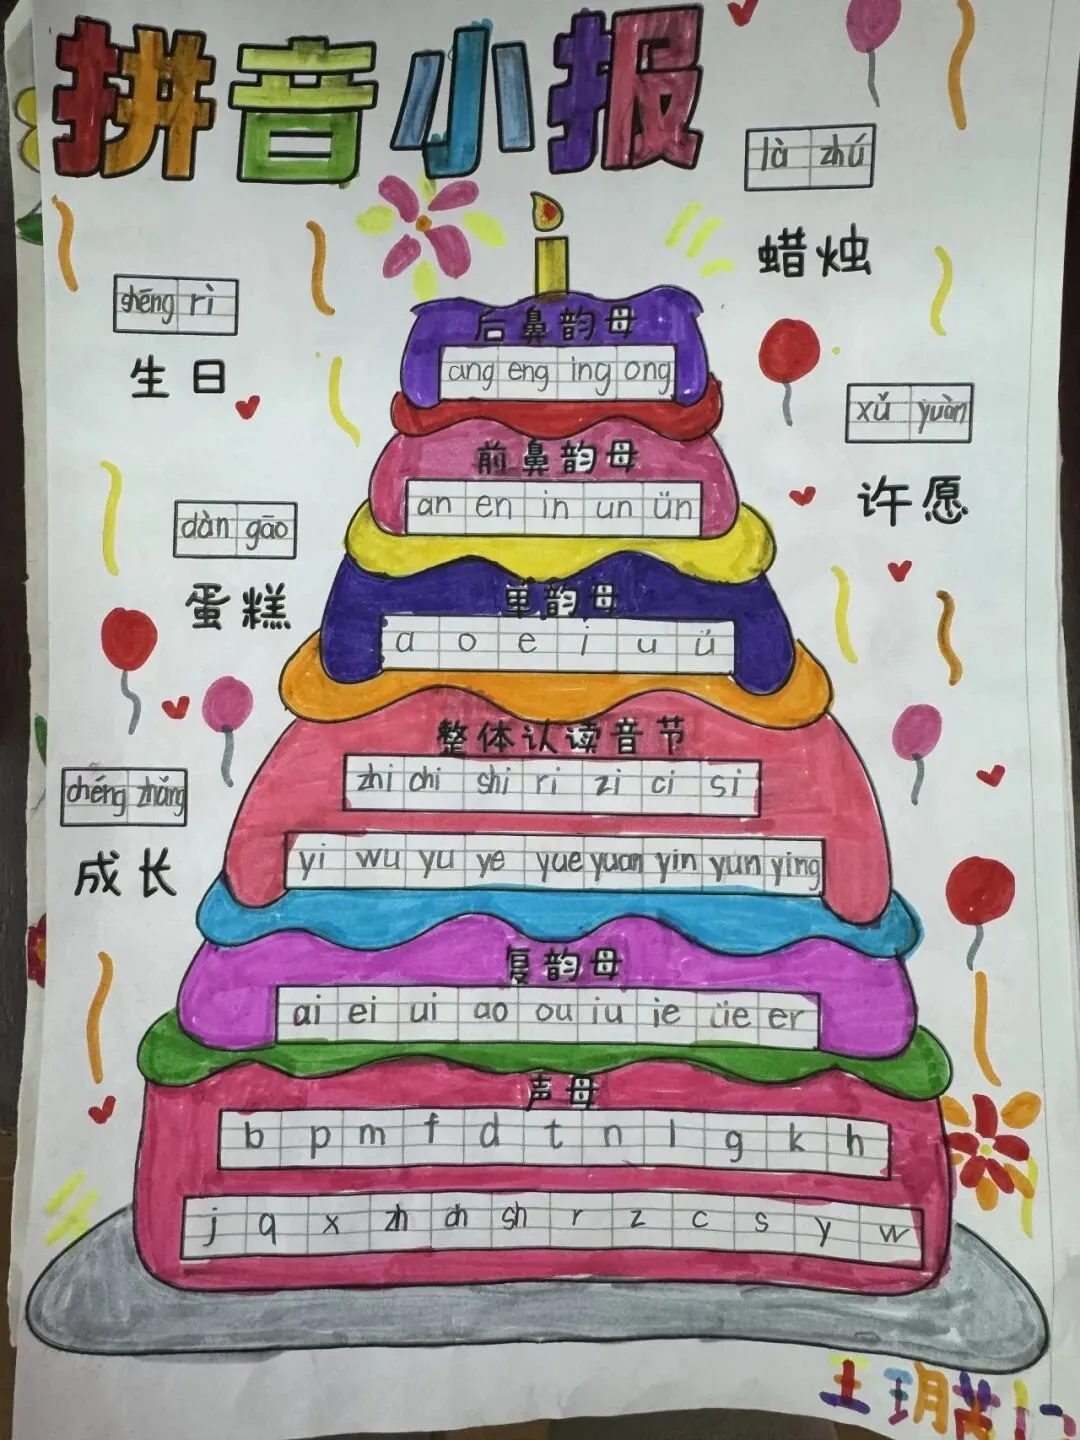 拼音小报
là zhú
蜡烛
shēng rì
生日
后鼻韵母
ang eng ing ong
xǔ yuàn
许愿
前鼻韵母
an en in un ün
dàn gāo
蛋糕
单韵母
a o e i u ü
整体认读音节
zhi chi shi ri zi ci si
yi wu yu ye yue yuan yin yun ying
chéng zhǎng
成长
复韵母
ai ei ui ao ou iu ie üe er
声母
b p m f d t n l g k h
j q x zh ch sh r z c s y w
王玥